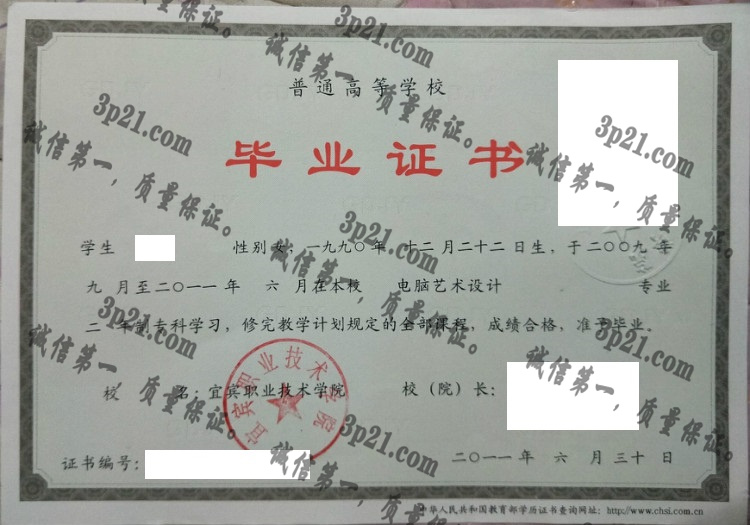 普通高等学校
毕业证书
学生 性别 女，一九九〇年 十二月二十二日生，于二〇〇九年
九月至二〇一一年 六 月在本校 电脑艺术设计 专业
二 年制专科学习，修完教学计划规定的全部课程，成绩合格，准予毕业。
校 名：宜宾职业技术学院 校（院）长：
宜宾职业技术学院
证书编号： 二〇一一年 六 月三十日
中华人民共和国教育部学历证书查询网址：http://www.chsi.com.cn
3p21.com
诚信第一，质量保证。
3p21.com
诚信第一，质量保证。
3p21.com
诚信第一，质量保证。
3p21.com
诚信第一，质量保证。
3p21.com
诚信第一，质量保证。
3p21.com
诚信第一，质量保证。
3p21.com
诚信第一，质量保证。